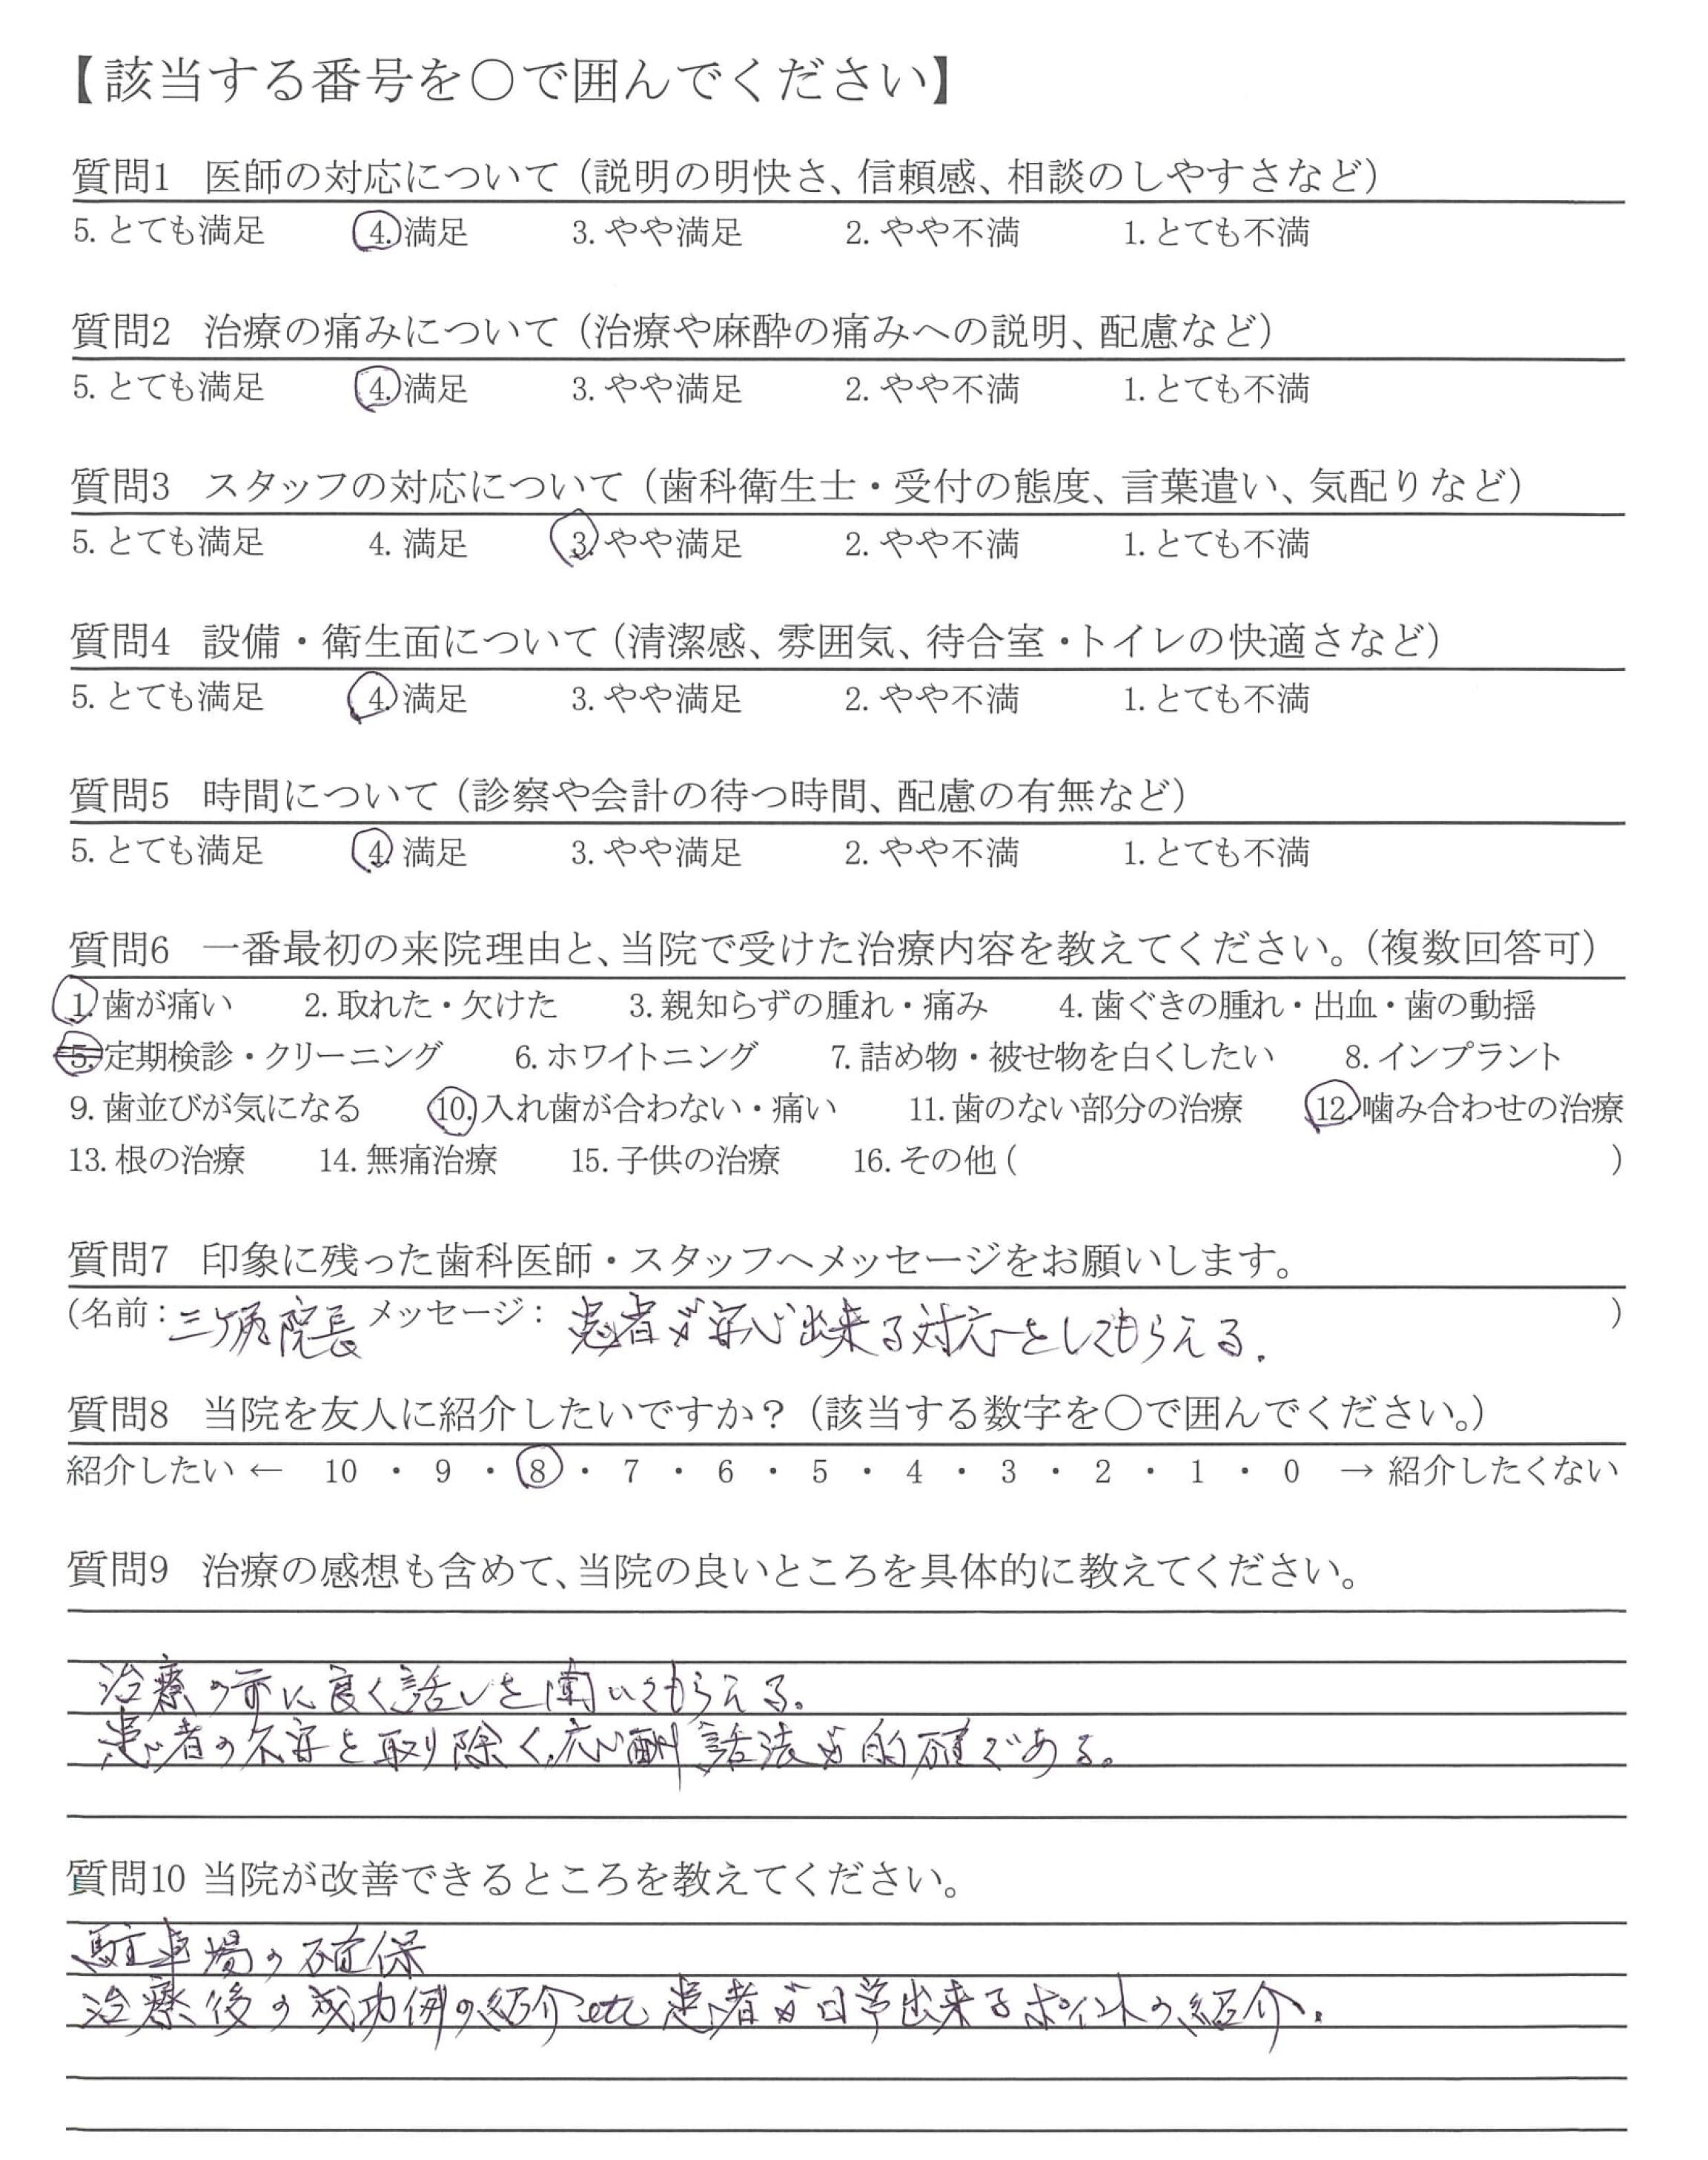 【該当する番号を〇で囲んでください】
質問1 医師の対応について（説明の明快さ、信頼感、相談のしやすさなど）
5. とても満足 4. 満足 3. やや満足 2. やや不満 1. とても不満
質問2 治療の痛みについて（治療や麻酔の痛みへの説明、配慮など）
5. とても満足 4. 満足 3. やや満足 2. やや不満 1. とても不満
質問3 スタッフの対応について（歯科衛生士・受付の態度、言葉遣い、気配りなど）
5. とても満足 4. 満足 3. やや満足 2. やや不満 1. とても不満
質問4 設備・衛生面について（清潔感、雰囲気、待合室・トイレの快適さなど）
5. とても満足 4. 満足 3. やや満足 2. やや不満 1. とても不満
質問5 時間について（診察や会計の待つ時間、配慮の有無など）
5. とても満足 4. 満足 3. やや満足 2. やや不満 1. とても不満
質問6 一番最初の来院理由と、当院で受けた治療内容を教えてください。（複数回答可）
1. 歯が痛い 2. 取れた・欠けた 3. 親知らずの腫れ・痛み 4. 歯ぐきの腫れ・出血・歯の動揺
5. 定期検診・クリーニング 6. ホワイトニング 7. 詰め物・被せ物を白くしたい 8. インプラント
9. 歯並びが気になる 10. 入れ歯が合わない・痛い 11. 歯のない部分の治療 12. 噛み合わせの治療
13. 根の治療 14. 無痛治療 15. 子供の治療 16. その他（ ）
質問7 印象に残った歯科医師・スタッフへメッセージをお願いします。
（名前： 院長 メッセージ： 患者が安心出来る対応をしてもらえる. ）
質問8 当院を友人に紹介したいですか？（該当する数字を〇で囲んでください。）
紹介したい ← 10 ・ 9 ・ 8 ・ 7 ・ 6 ・ 5 ・ 4 ・ 3 ・ 2 ・ 1 ・ 0 → 紹介したくない
質問9 治療の感想も含めて、当院の良いところを具体的に教えてください。
治療の前に良く話しを聞いてもらえる。
患者の不安を取り除く、応酬話法が的確である。
質問10 当院が改善できるところを教えてください。
駐車場の確保
治療後の成功例の紹介etc 患者が出来るポイントの紹介.